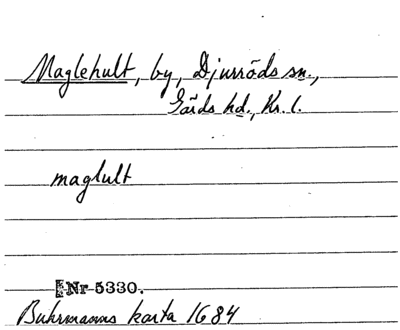 Maglehult, by, Djurröds sn.,
Gärds hd., Kr. l.
maglult
Nr 5330.
Buhrmanns karta 1684